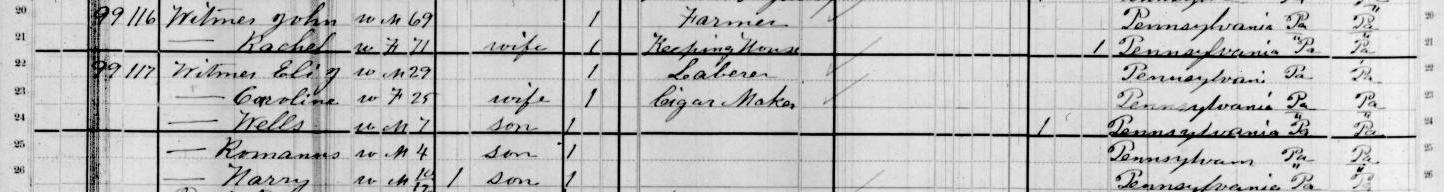 20 99 116 Witmer John W M 69 1 Farmer Pennsylvania Pa Pa 20
21 — Rachel W F 71 wife 1 Keeping House 1 Pennsylvania "Pa "Pa 21
22 99 117 Witmer Eli J W M 29 1 Laberer Pennsylvani Pa Pa 22
23 — Caroline W F 25 wife 1 Cigar Maker Pennsylvania Pa Pa 23
24 — Wells W M 7 son 1 1 Pennsylvania "Pa "Pa 24
25 — Romanus W M 4 son 1 Pennsylvam Pa Pa 25
26 — Harry W M 10/12 1 son 1 Pennsylvania "Pa "Pa 26